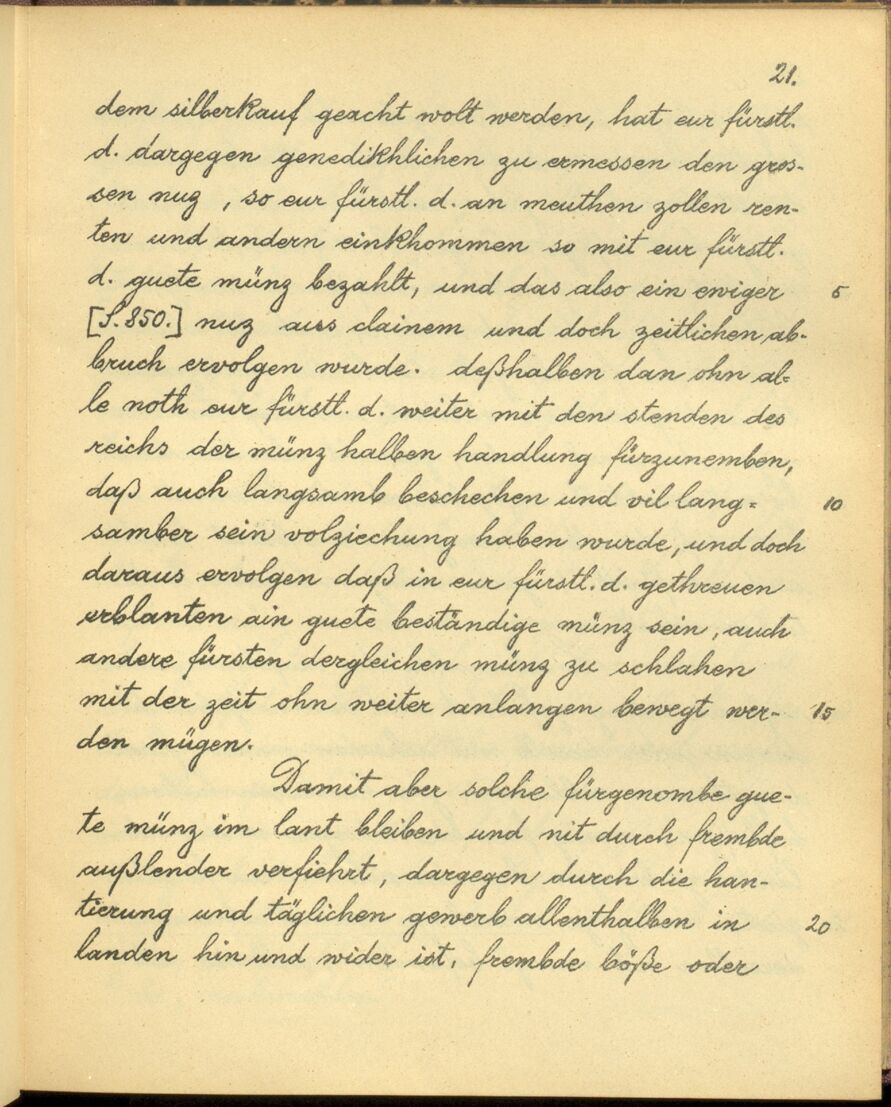 21.
dem silberkauf geacht wolt werden, hat eur fürstl.
d. dargegen genedikhlichen zu ermessen den gros-
sen nuz, so eur fürstl. d. an meuthen zollen ren-
ten und andern einkhommen so mit eur fürstl.
d. guete münz bezahlt, und das also ein ewiger 5
[S.850.] nuz auss clainem und doch zeitlichen ab-
bruch ervolgen wurde. deßhalben dan ohn al-
le noth eur fürstl. d. weiter mit den stenden des
reichs der münz halben handlung fürzunemben,
daß auch langsamb beschechen und vil lang= 10
samber sein volziechung haben wurde, und doch
daraus ervolgen daß in eur fürstl. d. gethreuen
erblanten ain guete beständige münz sein, auch
andere fürsten dergleichen münz zu schlahen
mit der zeit ohn weiter anlangen bewegt wer- 15
den mügen.
Damit aber solche fürgenombe gue-
te münz im lant bleiben und nit durch frembde
außlender verfiehrt, dargegen durch die han-
tierung und täglichen gewerb allenthalben in 20
landen hin und wider ist, frembde böße oder